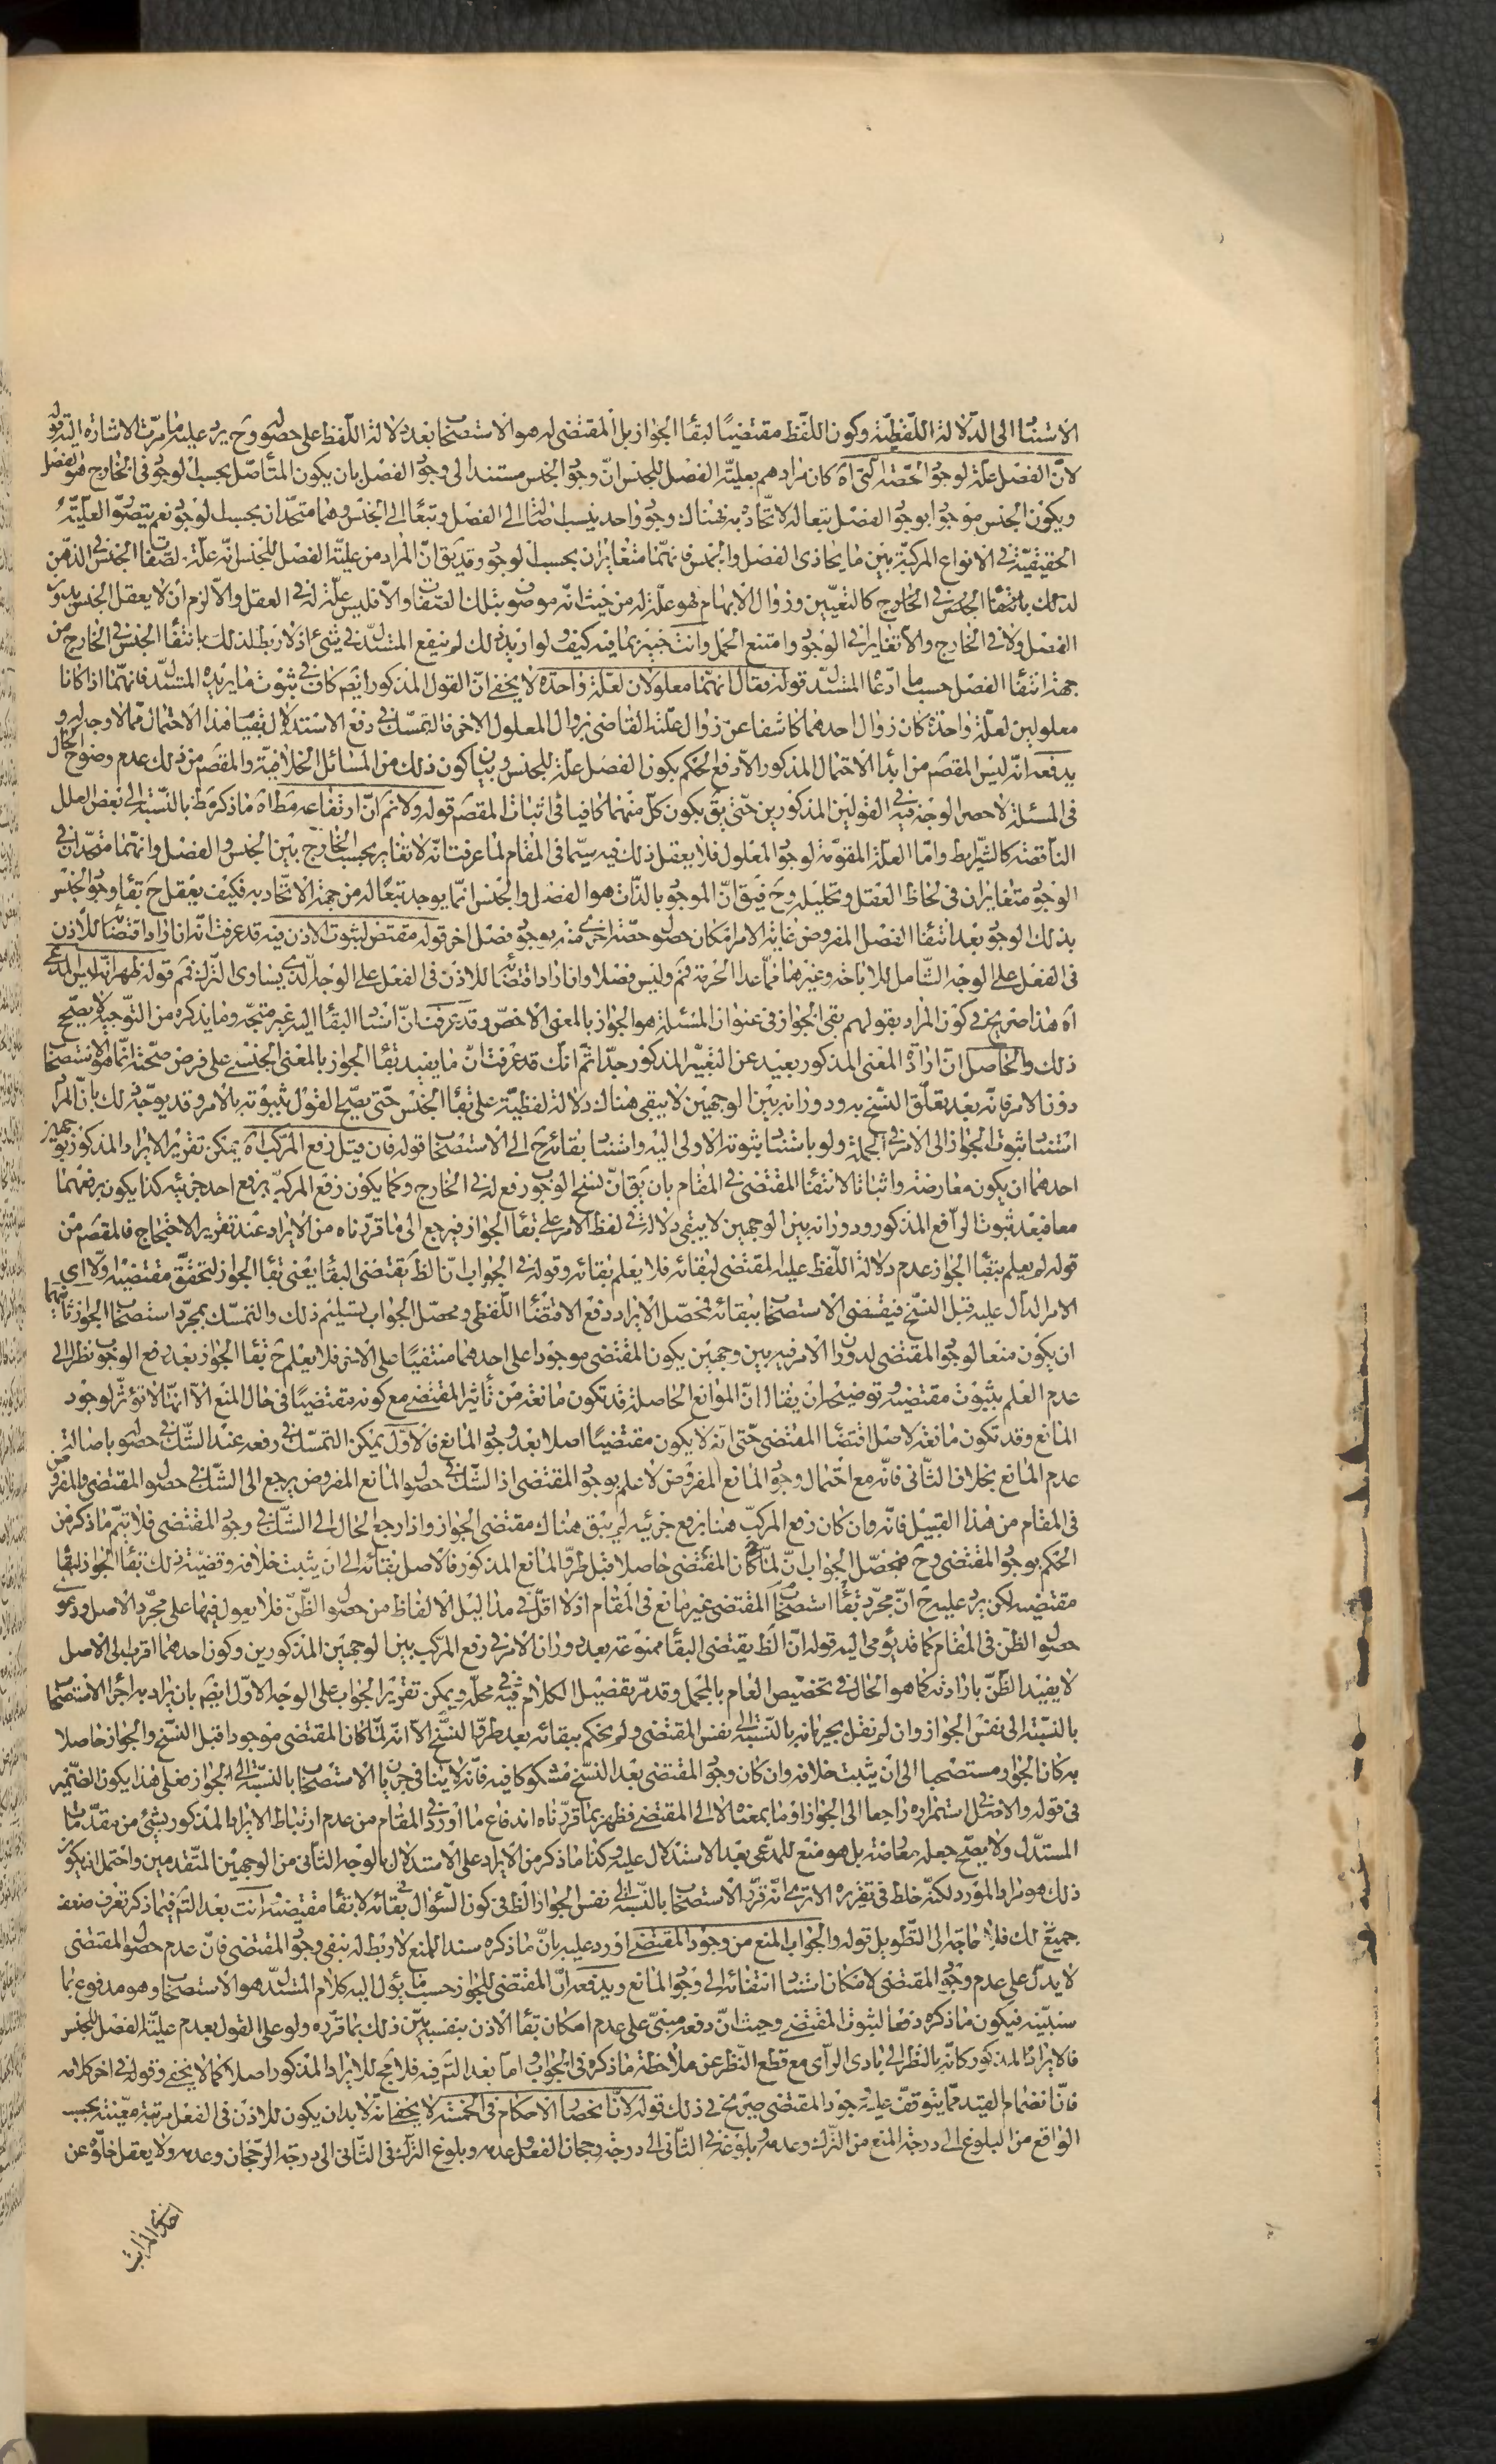 الاستناد الى الدلالة اللفظية وكون اللفظ مقتضيا لبقاء الجواز بل المقتضى له هو الاستصحاب بعد دلالة اللفظ على حصوله وح يرد عليه ما مرت الاشارة اليه قوله
لان الفصل علة لوجود الحصة التى اه كان مرادهم بعلية الفصل للجنس ان وجود الجنس مستند الى وجود الفصل بان يكون المتاصل بحسب الوجود فى الخارج هو الفصل
ويكون الجنس موجودا بوجود الفصل تبعا له لاتحاده به فهناك وجود واحد ينسب اصالة الى الفصل وتبعا الى الجنس وهما متحدان بحسب الوجود نعم يتصور العلية
الحقيقية فى الانواع المركبة بين ما يحاذى الفصل والجنس فانهما متغايران بحسب الوجود وقد يق ان المراد من علية الفصل للجنس انه علة لصفات الجنس فى الذهن
كالتعيين وزوال الابهام فهو علة له من حيث انه موصوف بتلك الصفات والا فليس علة له فى العقل والا لزم ان لا يعقل الجنس بدون
الفصل ولا فى الخارج والا تغايرا فى الوجود وامتنع الحمل وانت خبير بما فيه كيف ولو اريد ذلك لم ينفع المستدل فى شئ اذ لا ربط لذلك بانتفاء الجنس فى الخارج من
جهة انتفاء الفصل حسب ما ادعاه المستدل قوله فقال انهما معلولان لعلة واحدة لا يخفى ان القول المذكور ايضم كاف فى ثبوت ما يريده المستدل فانهما اذا كانا
معلولين لعلة واحدة كان زوال احدهما كاشفا عن زوال علته القاضى بزوال المعلول الاخر فالتمسك فى دفع الاستدلال بقيام هذا الاحتمال مما لا وجه له و
يدفعه انه ليس المقصم من ابداء الاحتمال المذكور الا دفع الحكم بكون الفصل علة للجنس وبيان كون ذلك من المسائل الخلافية والمقصم من ذلك عدم وضوح الحال
فى المسئلة لا حصر الوجه فيه فى القولين المذكورين حتى يق بكون كل منهما كافيا فى اثبات المقصم قوله ولا نم ان ارتفاعه مطلقا اه ما ذكره ظ بالنسبة الى بعض العلل
الناقصة كالشرايط واما العلة المقومة لوجود المعلول فلا يعقل ذلك فيه سيما فى المقام لما عرفت انه لا تغاير بحسب الخارج بين الجنس والفصل وانهما متحدان فى
الوجود متغايران فى لحاظ العقل وتحليله وح فيق ان الموجود بالذات هو الفصل والجنس انما يوجد تبعا له من جهة الاتحاد به فكيف يعقل ح بقاء وجود الجنس
بذلك الوجود بعد انتفاء الفصل المفروض غاية الامر امكان حصول حصة اخرى منه بوجود فصل اخر قوله مقتض لثبوت الاذن فيه قد عرفت انه ان اراد اقتضائه للاذن
فى الفعل على الوجه الشامل للاباحة وغيرها مما عدا الحرمة فمم وليس فصلا وان اراد اقتضائه للاذن فى الفعل على الوجه الذى يساوى الترك فمم قوله ظهر انه ليس المدعى
اه هذا صريح فى كون المراد بقولهم بقى الجواز فى عنوان المسئلة هو الجواز بالمعنى الاخص وقد عرفت ان اسناد البقاء اليه غير متجه وما يذكره من التوجيه لا يصحح
ذلك والحاصل ان ارادة المعنى المذكور بعيد عن التعبير المذكور جدا ثم انك قد عرفت ان ما يفيد بقاء الجواز بالمعنى الجنسى على فرض صحته انما هو الاستصحاب
دون الامر فانه بعد تعلق النسخ به ودورانه بين الوجهين لا يبقى هناك دلالة لفظية على بقاء الجنس حتى يصح القول بثبوته بالامر وقد يوجه ذلك بان المراد
استناد ثبوت الجواز الى الامر فى الجملة ولو باستناد ثبوته الاولى اليه واستناد بقائه ح الى الاستصحاب قوله فان قيل رفع المركب اه يمكن تقرير الايراد المذكور بوجهين
احدهما ان يكون معارضة واثباتا لانتفاء المقتضى فى المقام بان يق ان نسخ الوجوب رفع له فى الخارج وكما يكون رفع المركب برفع احد جزئيه كذا يكون برفعهما
معا فبعد ثبوت الرافع المذكور ودورانه بين الوجهين لا يبقى دلالة فى لفظ الامر على بقاء الجواز فيرجع الى ما قررناه من الايراد عند تقرير الاحتجاج فالمقصم من
قوله لم يعلم ببقاء الجواز عدم دلالة اللفظ عليه المقتضى لبقائه فلا يعلم بقائه وقوله فى الجواب ان الظ يقتضى البقاء يعنى بقاء الجواز لتحقق مقتضيه اولا اى
الامر الدال عليه قبل النسخ فيقتضى الاستصحاب ببقائه فمحصل الايراد دفع الاقتضاء اللفظى ومحصل الجواب تسليم ذلك والتمسك بمجرد استصحاب الجواز ثانيهما
ان يكون منعا لوجود المقتضى لدوران الامر فيه بين وجهين يكون المقتضى موجودا على احدهما منتفيا على الاخر فلا يعلم ح بقاء الجواز بعد رفع الوجوب نظرا الى
عدم العلم بثبوت مقتضيه وتوضيحه ان يقال ان الموانع الحاصلة قد تكون مانعة من تأثير المقتضى مع كونه مقتضيا فى حال المنع الا انها لا تؤثر لوجود
المانع وقد تكون مانعة لاصل اقتضاء المقتضى حتى انه لا يكون مقتضيا اصلا بعد وجود المانع فالاول يمكن التمسك فى رفعه عند الشك فى حصوله باصالة
عدم المانع بخلاف الثانى فانه مع احتمال وجود المانع المفروض لا علم بوجود المقتضى اذ الشك فى حصول المانع المفروض يرجع الى الشك فى حصول المقتضى والمفروض
فى المقام من هذا القبيل فانه وان كان رفع المركب هنا برفع جزئيه لم يبق هناك مقتضى الجواز واذا رجع الحال الى الشك فى وجود المقتضى فلا يتم ما ذكر من
الحكم بوجود المقتضى وح فمحصل الجواب انه لما كان المقتضى حاصلا قبل طرو المانع المذكور فالاصل بقائه الى ان يثبت خلافه وقضية ذلك بقاء الجواز لبقاء
مقتضيه لكن يرد عليه ح ان مجرد استصحاب بقاء المقتضى غير مانع فى المقام اذ لا اقل فى مداليل الالفاظ من حصول الظن فلا يعول فيها على مجرد الاصل ودعوى
حصول الظن فى المقام كما قد يؤمى اليه قوله ان الظ يقتضى البقاء ممنوعة بعد دوران الامر فى رفع المركب بين الوجهين المذكورين وكون احدهما اقرب الى الاصل
لا يفيد الظن بارادته كما هو الحال فى تخصيص العام بالمجمل وقد مر تفصيل الكلام فيه فى محله ويمكن تقرير الجواب على الوجه الاول ايضم بان يراد به اجراء الاستصحاب
بالنسبة الى نفس الجواز وان لم نقل بجريانه بالنسبة الى نفس المقتضى ولم يحكم ببقائه بعد طرو النسخ الا انه لما كان المقتضى موجودا قبل النسخ والجواز حاصلا
به كان الجواز مستصحبا الى ان يثبت خلافه وان كان وجود المقتضى بعد النسخ مشكوكا فيه فانه لا ينافى جريان الاستصحاب بالنسبة الى الجواز فعلى هذا يكون الضمير
فى قوله والاصل استمراره راجعا الى الجواز او ما بمعناه لا الى المقتضى فظهر بما قررناه اندفاع ما اورد فى المقام من عدم ارتباط الايراد المذكور بشئ من مقدمات
المستدل ولا يصح جعله معارضة بل هو منع للمدعى بعد الاستدلال عليه وكذا ما ذكر من الايراد على الاستدلال بالوجه الثانى من الوجهين المتقدمين واحتمل ان يكون
ذلك هو مراد المورد لكنه خلط فى تقريره الا ترى انه قرر الاستصحاب بالنسبة الى نفس الجواز الظ فى كون السؤال فى بقائه لا بقاء مقتضيه وانت بعد التم فيما ذكر تعرف ضعف
جميع ذلك فلا حاجة الى التطويل قوله والجواب المنع من وجود المقتضى اورد عليه بان ما ذكره سندا للمنع لا ربط له بنفى وجود المقتضى فان عدم حصول المقتضى
لا يدل على عدم وجود المقتضى لامكان استناد انتفائه الى وجود المانع ويدفعه ان المقتضى للجواز حسب ما يؤل اليه كلام المستدل هو الاستصحاب وهو مدفوع بما
سنبينه فيكون ما ذكره دفعا لثبوت المقتضى وحيث ان دفعه مبنى على عدم امكان بقاء الاذن بنفسه بين ذلك بما قرره ولو على القول بعدم علية الفصل للجنس
فالايراد المذكور كانه بالنظر الى بادى الراى مع قطع النظر عن ملاحظة ما ذكره فى الجواب واما بعد التم فيه فلا يتجه للايراد المذكور اصلا كما لا يخفى وقوله فى اخر كلامه
فان انضمام القيد مما يتوقف عليه وجود المقتضى صريح فى ذلك قوله لان انحصار الاحكام فى الخمسة لا يخفى انه لا بد ان يكون للاذن فى الفعل مرتبة معينة بحسب
الواقع من البلوغ الى درجة المنع من الترك وعدمه وبلوغه فى الثانى الى درجة رجحان الفعل وعدمه وبلوغ الترك فى الثانى الى درجة الرجحان وعدمه ولا يعقل خلوه عن
احدى المراتب